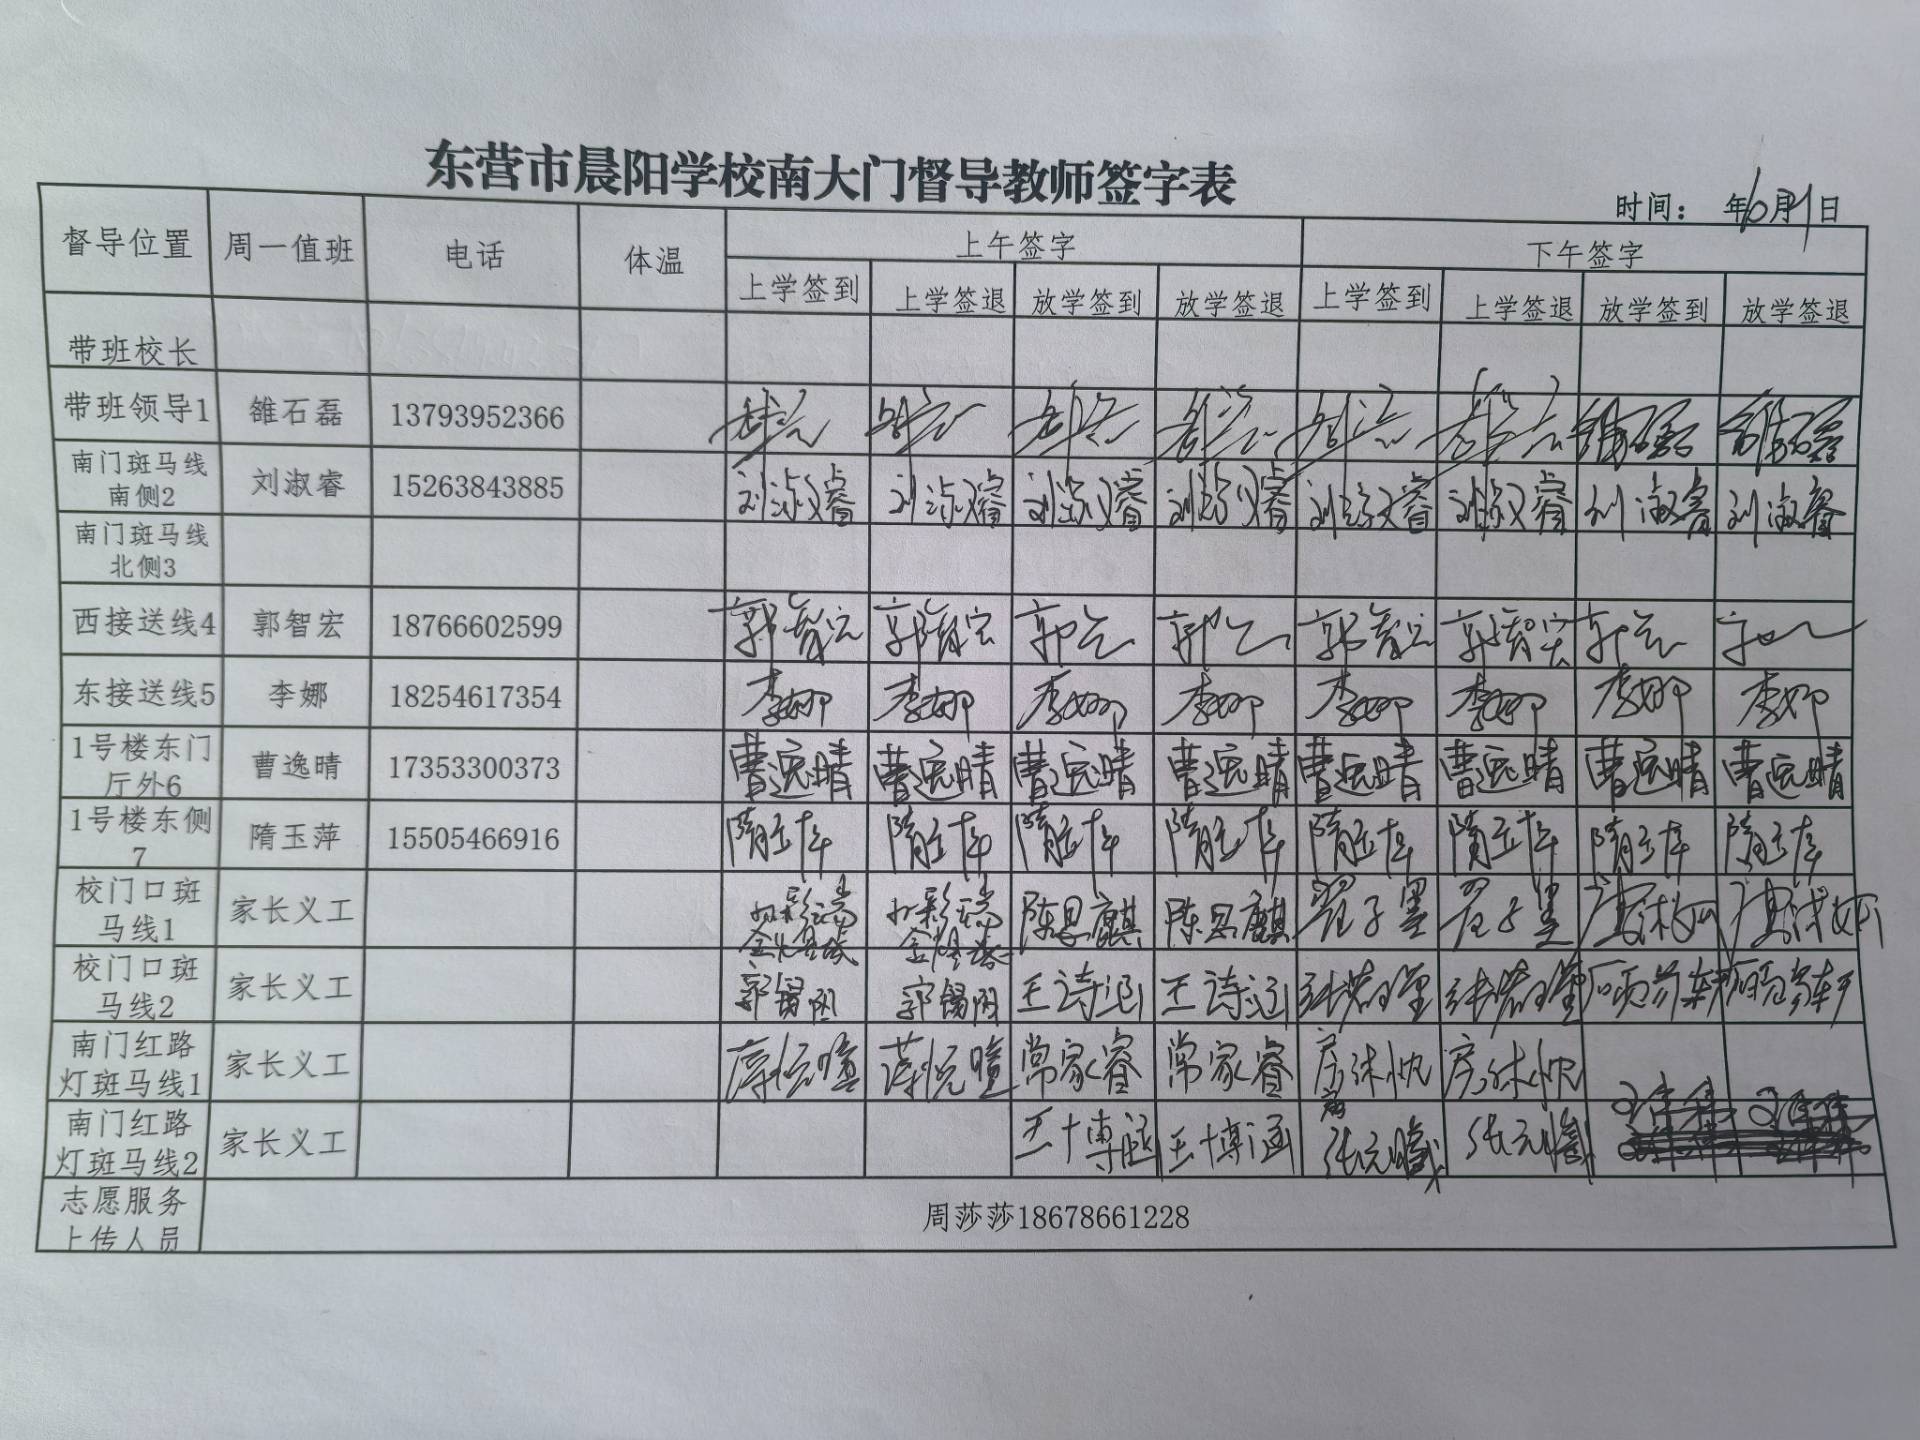 东营市晨阳学校南大门督导教师签字表
时间： 年6月1日
督导位置 周一值班 电话 体温 上午签字 下午签字
上学签到 上学签退 放学签到 放学签退 上学签到 上学签退 放学签到 放学签退
带班校长
带班领导1 雒石磊 13793952366 雒石磊 雒石磊
南门斑马线
南侧2 刘淑睿 15263843885 刘淑睿 刘淑睿 刘淑睿 刘淑睿 刘淑睿 刘淑睿 刘淑睿 刘淑睿
南门斑马线
北侧3
西接送线4 郭智宏 18766602599 郭智宏 郭智宏 郭智宏 郭智宏
东接送线5 李娜 18254617354 李娜 李娜 李娜 李娜 李娜 李娜 李娜 李娜
1号楼东门
厅外6 曹逸晴 17353300373 曹逸晴 曹逸晴 曹逸晴 曹逸晴 曹逸晴 曹逸晴 曹逸晴 曹逸晴
1号楼东侧
7 隋玉萍 15505466916 隋玉萍 隋玉萍 隋玉萍 隋玉萍 隋玉萍 隋玉萍 隋玉萍 隋玉萍
校门口斑
马线1 家长义工 陈思麒 陈思麒 翟子墨 翟子墨
校门口斑
马线2 家长义工 王诗涵 王诗涵
南门红路
灯斑马线1 家长义工 常家睿 常家睿
南门红路
灯斑马线2 家长义工 王博涵 王博涵
志愿服务
上传人员 周莎莎18678661228